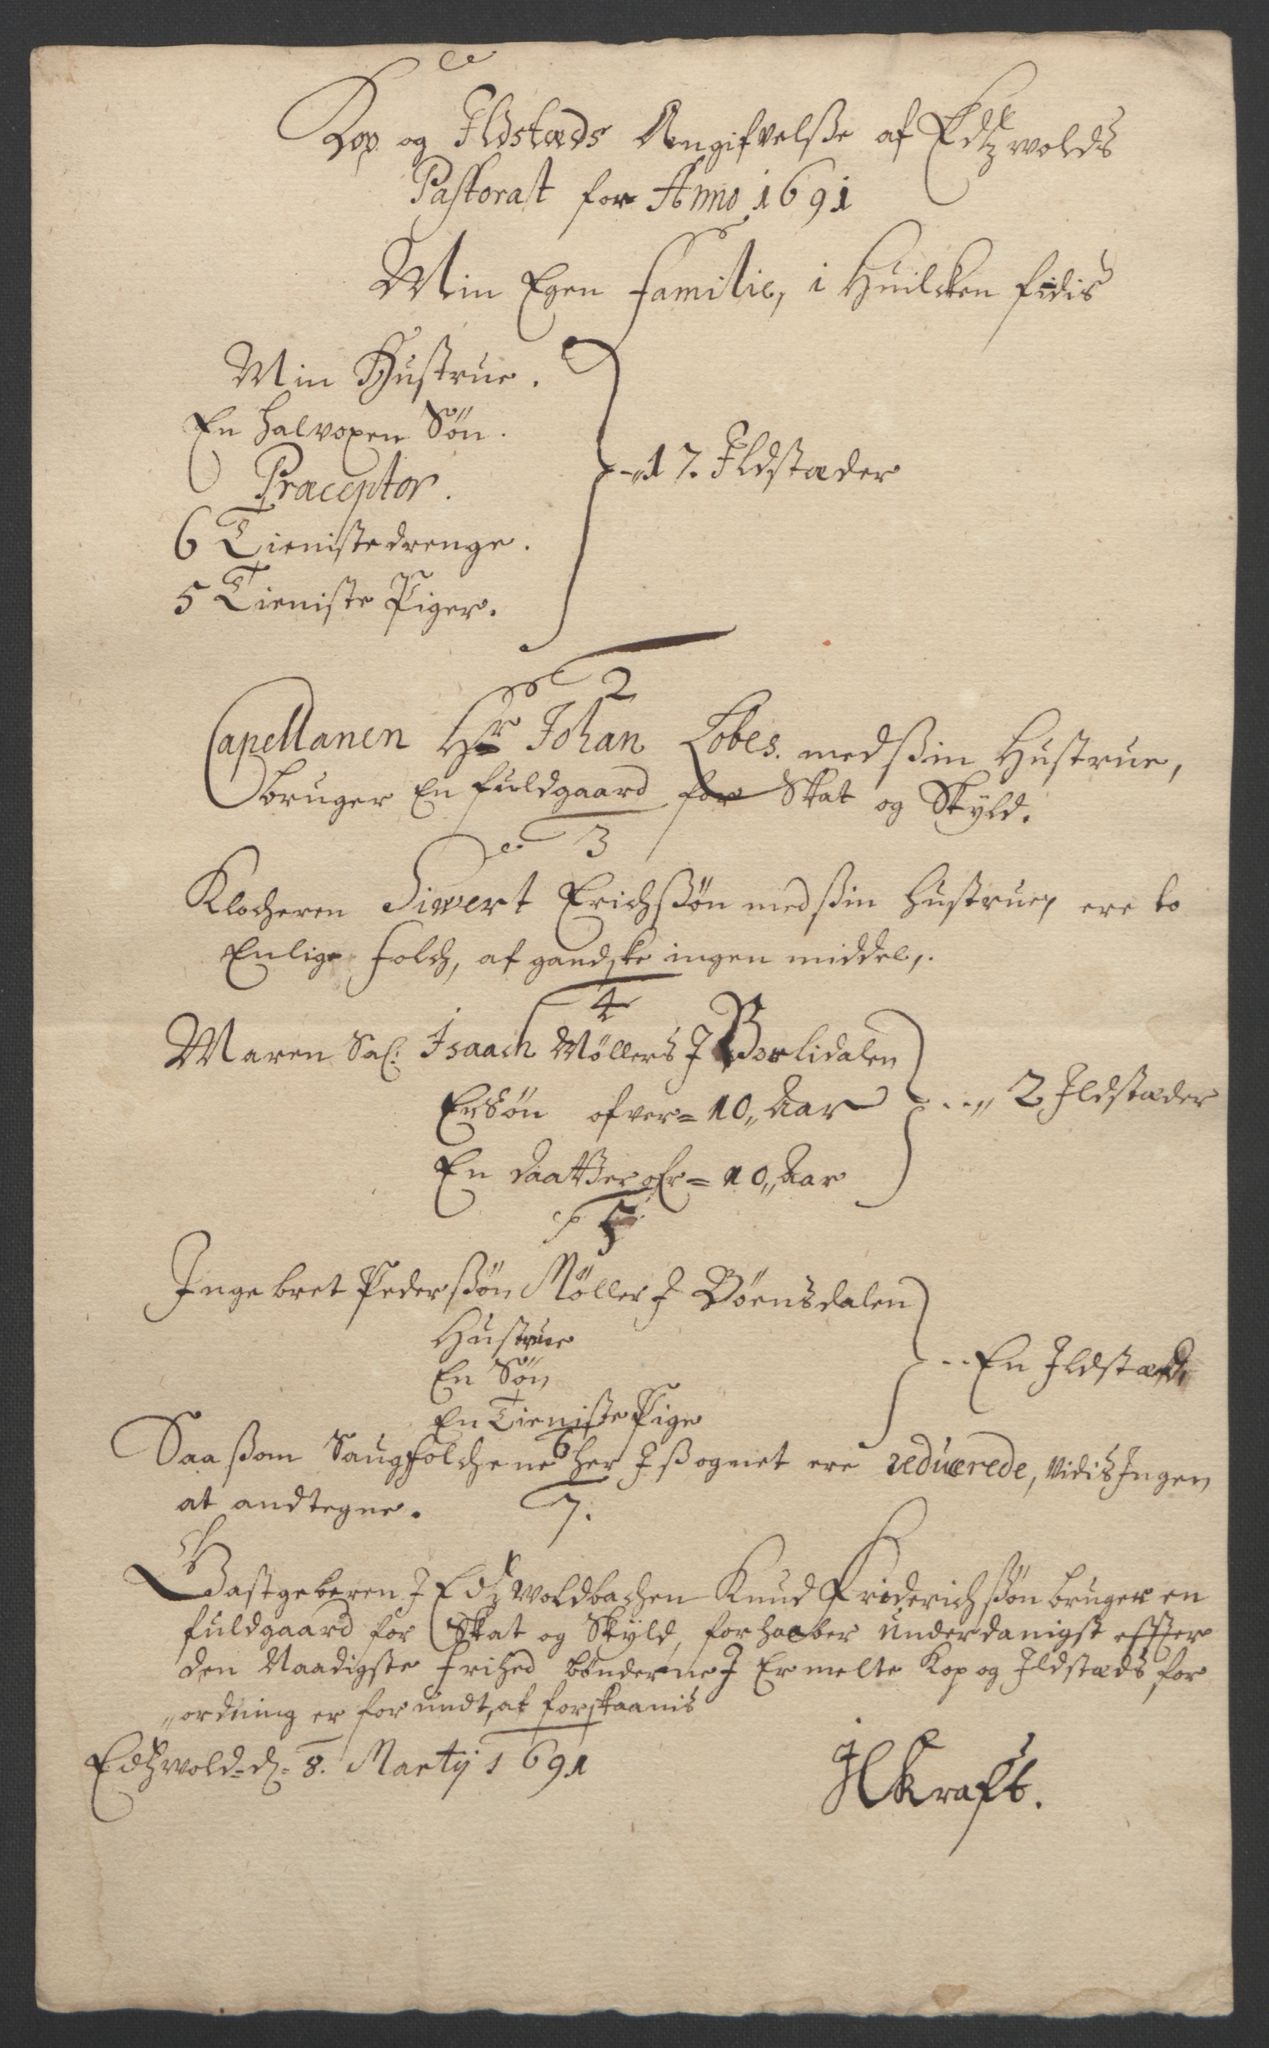 Kop og Ildstæds Angifvelße af Edtzvolds
Pastorat for Anno 1691
Min Egen familie, i Huilcken findis
Min Hustrue.
En halvoxen Søn.
Præceptor.
6 Tienistedrenge.
5 Tieniste Piger.
17. Ildstæder
2
Capellanen Hr Johan Lobes. med ßin Hustrue,
bruger En fuldgaard for Skat og Skyld.
3
Klocheren Siwert Erichßøn med ßin Hustrue, ere to
Enlige folch, af gandske ingen middel.
4
Maren Sal: Isaach Møllers I Borlidalen
En Søn ofver = 10,, Aar
En daatter ofr = 10,, Aar
2 Ildstæder
5
Ingebret Pederßøn Møller I Bøensdalen
Hustrue
En Søn
En Tieniste Pige
En Ildstæd.
6
Saa ßom Saugfolchene her I ßognet ere reducerede, vidis Ingen
at andtegne.
7.
Gastgeberen I Edtzvoldbachen Knud Friderichßøn bruger en
fuldgaard for Skat og Skyld, forhaaber underdanigst effter
den Naadigste frihed bønderne I Ermelte Kop og Ildstæds for
,,ordning er forundt, at forskaanis
Edtzvold d. 8. Martij 1691
Kraft.